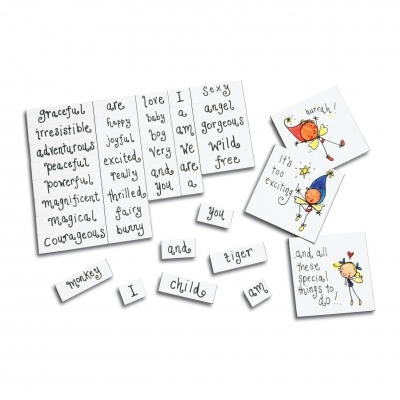 graceful
irresistible
adventurous
peaceful
powerful
magnificent
magical
courageous
are
happy
joyful
excited
really
thrilled
fairy
bunny
love
baby
boy
very
and
you
I
a
am
we
are
a
sexy
angel
gorgeous
wild
free
hurrah!
it's
too
exciting
and all
these
special
things to
do!..
you
and
tiger
monkey
I
child
am